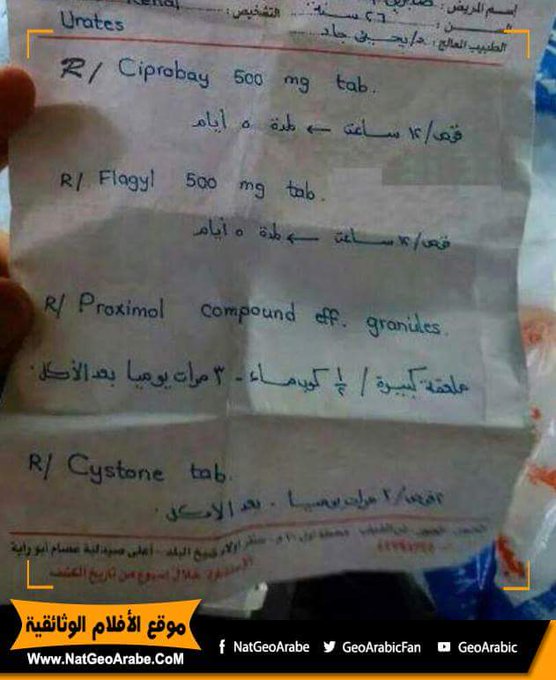 إسم المريض :
السن : ٢٦ سنة التشخيص : Renal
الطبيب المعالج : د/يحيى جاد Urates
R/ Ciprobay 500 mg tab.
قرص/١٢ ساعة ← لمدة ٥ أيام
R/ Flagyl 500 mg tab.
قرص/١٢ ساعة ← لمدة ٥ أيام
R/ Proximol compound eff. granules.
ملعقة كبيرة / ½ كوب ماء - ٣ مرات يوميا بعد الأكل.
R/ Cystone tab.
٢قرص/٢ مرات يوميا - بعد الأكل.
شيخ البلد - أعلى صيدلية عصام أبو راية
الاستشارة خلال أسبوع من تاريخ الكشف
موقع الأفلام الوثائقية
Www.NatGeoArabe.CoM
f NatGeoArabe GeoArabicFan GeoArabic